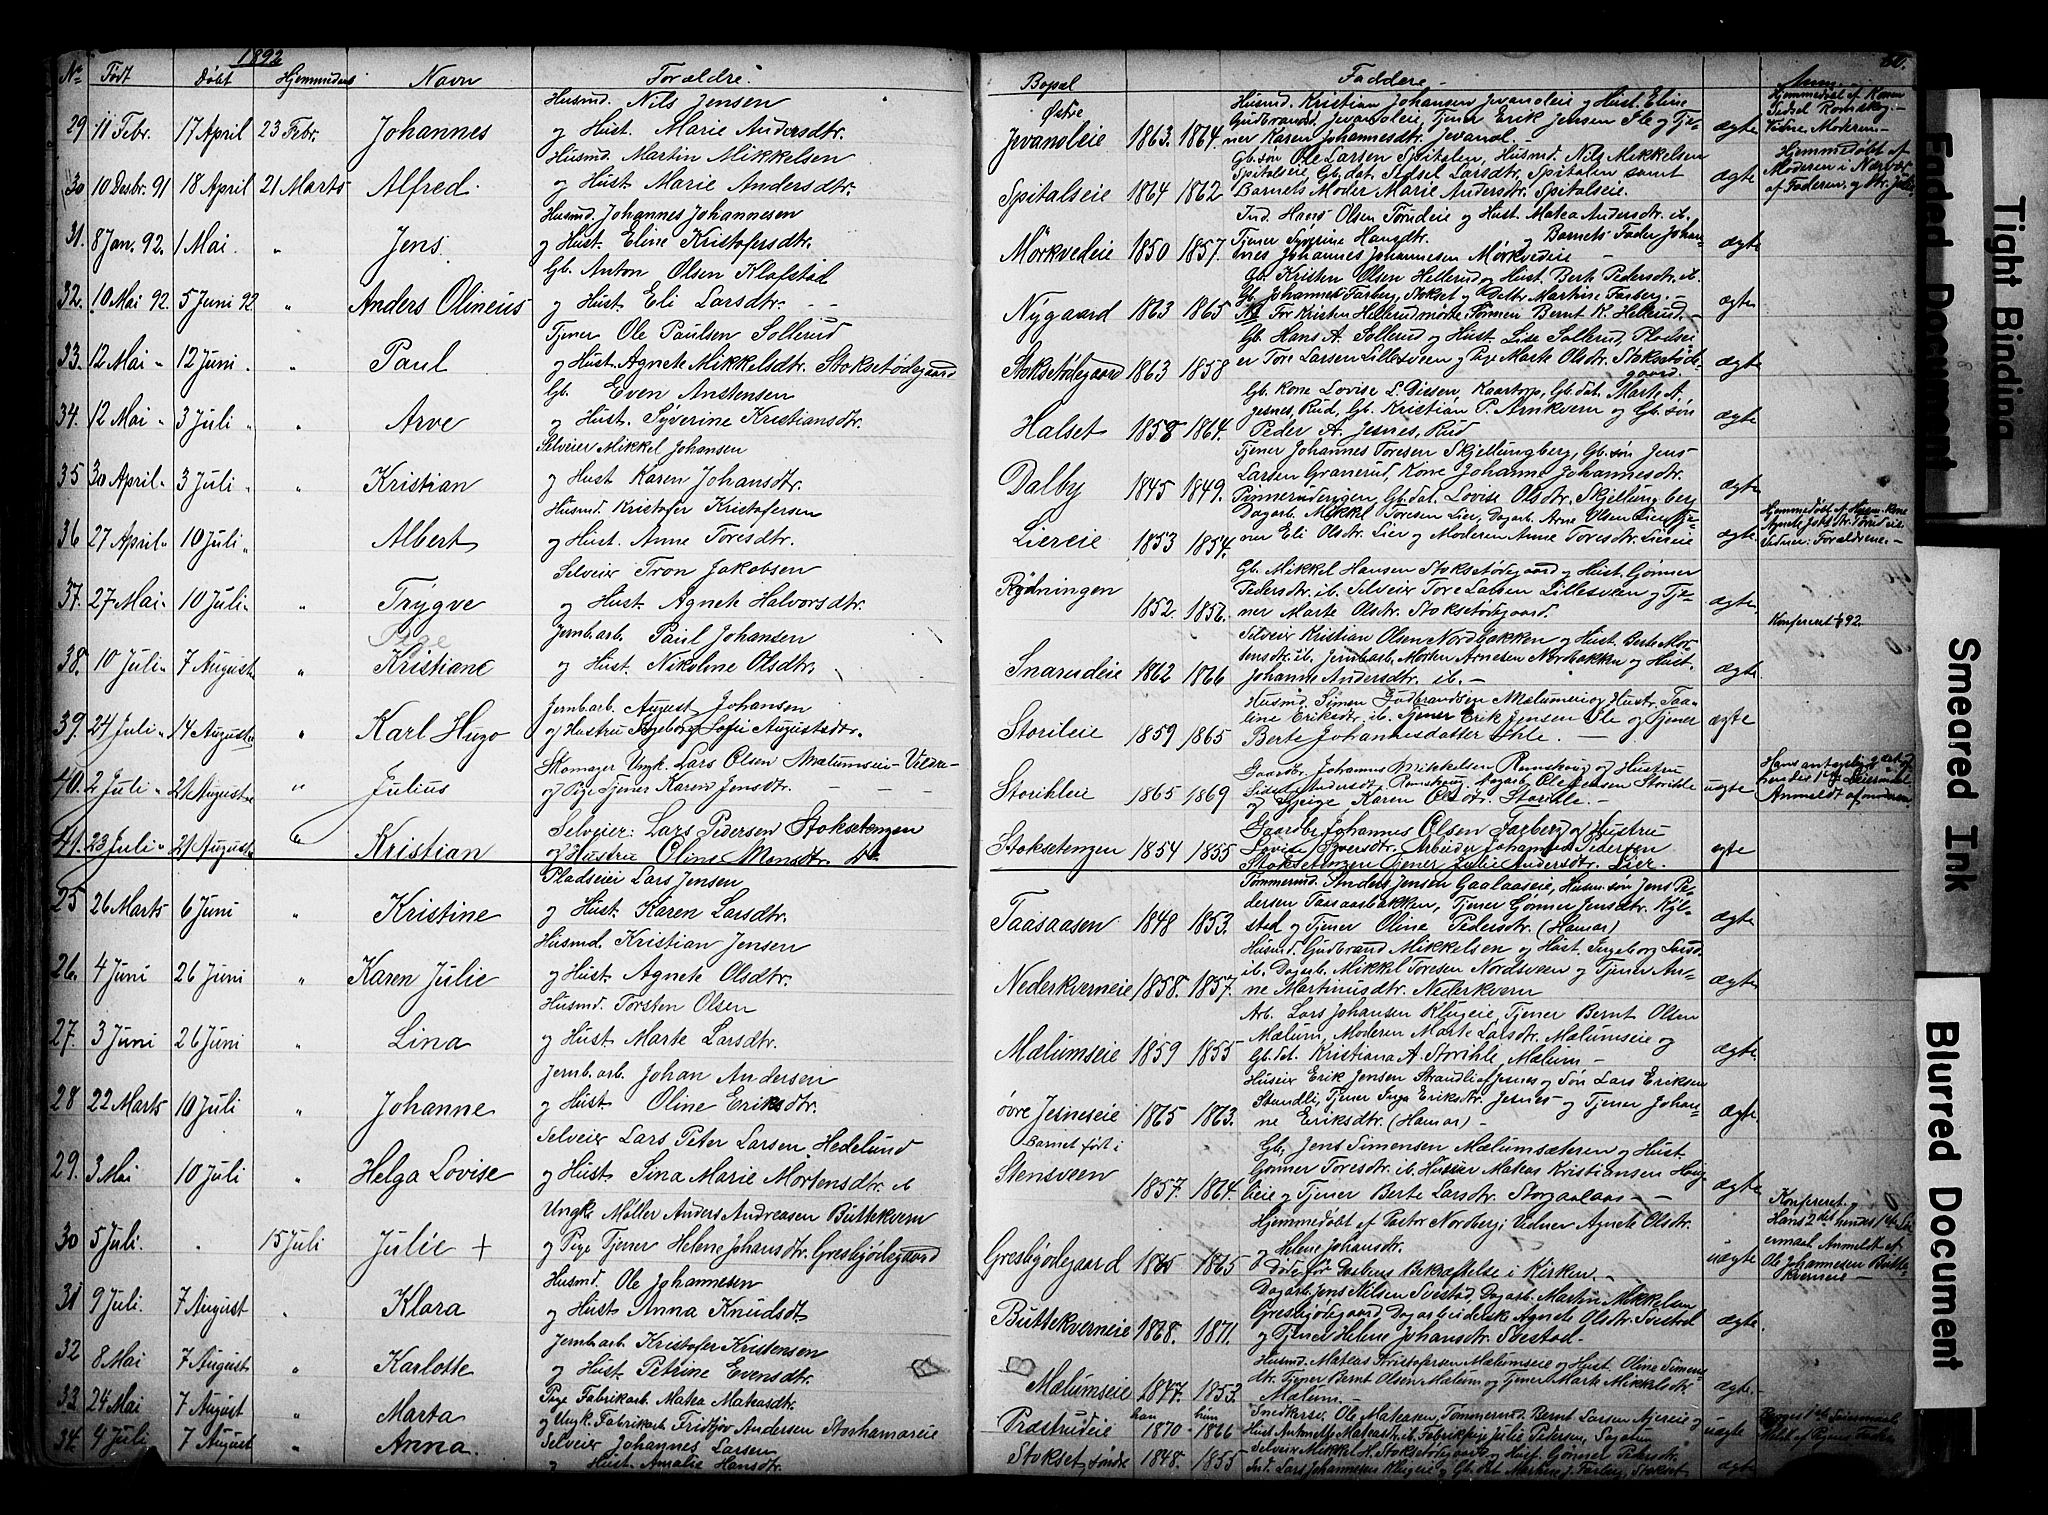 1892
60.
Nº Født Døbt Hjemmedøbt Navn Forældre Bopæl Faddere Anm.
29 11 Febr. 17 April 23 Febr. Johannes
Husmd. Nils Jensen
og Hust. Marie Andersdtr.
Østre
Jvanoleie 1863. 1864.
Husmd. Kristian Johansen Jvanoleie og Hust. Eline
Gudbrandsd. Jvanoleie, Tjener Erik Jensen Ile og Tje-
ner Karen Johannesdtr. Jvanol.
ægte
Hjemmedøbt af Konen
Sidsel Romskog.
Vidne Moderen
30 10 Desbr. 91 18 April 21 Marts Alfred.
Husmd. Martin Mikkelsen
og Hust. Marie Andersdtr.
Spitalseie 1864 1862
Gb. søn Ole Larsen Spitalen, Husmd. Nils Mikkelsen
Spitalseie, Gb. dat. Sidsel Larsdtr. Spitalen samt
Barnets Moder Marie Andersdtr. Spitalseie.
ægte
Hjemmedøbt af
Moderen i Nærvær
af Faderen og
31. 8 Jan. 92. 1 Mai " Jens
Husmd. Johannes Johannesen
og Hust. Eline Kristofersdtr.
Mørkvedeie 1850 1857.
Ind. Hans Olsen Torudeie og Hust. Matea Andersdtr. ib.
Tjener Syverine Hansdtr. og Barnets Fader Johan-
nes Johannesen Mørkvedeie —
ægte
32. 10 Mai 92 5 Juni 92 " Anders Olineius
Gb. Anton Olsen Klafstad
og Hust. Eli Larsdtr. - -
Nygaard 1863 1865
Gb. Kristen Olsen Hellerud og Hust. Berte Pedersdtr. ib.
Gb. Johannes Farberg, Stokset og Dattr. Martine Farberg. -
NB For Kristen Hellerud mødte Sønnen Bernt K. Hellerud. -
ægte
33. 12 Mai " 12 Juni " " Paul
Tjener Ole Paulsen Sollerud
og Hust. Agnete Mikkelsdtr. Stoksetødegaard
Stoksetødegaard 1863 1858
Gb. Hans A. Sollerud og Hust. Lise Sollerud, Pladsei
er Tore Larsen Lillesveen og Pige Marte Olsdtr. Stoksetøde-
gaard.
ægte
34. 12 Mai " 3 Juli " " Arve
Gb. Even Anstensen
og Hust. Syverine Kristiansdtr.
Halset 1858 1864.
Gb. Kone Lovise L. Dissen, Kaartorp, Gb. dat. Marte A.
Jesnes, Rud, Gb. Kristian P. Arnkvern og Gb. søn
Peder A. Jesnes, Rud
ægte
35 30 April " 3 Juli " " Kristian
Selveier Mikkel Johansen
og Hust. Karen Johansdtr.
Dalby 1845 1849.
Tjener Johannes Toresen Skjellungberg, Gb. søn Jens
Larsen Granerud, Kone Johanne Johannesdtr.
Pinnerudengen, Gb. dat. Lovise Olsdtr. Skjellungberg
ægte
36 27 April " 10 Juli " Albert
Husmd. Kristofer Kristofersen
og Hust. Anne Toresdtr.
Liereie 1853 1854.
Dagarb. Mikkel Toresen Lier, Dagarb. Arne Olsen Lier, Tje-
ner Eli Olsdtr. Lier og Moderen Anne Toresdtr. Liereie
ægte
Hjemmedøbt af Husm. kone
Agnete Torudeie
Vidner: Forældrene. -
37. 27 Mai " 10 Juli " " Trygve
Selveier Tron Jakobsen
og Hust. Agnete Halvorsdtr.
Rydningen 1852. 1856.
Gb. Mikkel Hansen Stoksetødegaard og Hust. Gønner
Pedersdtr. ib. Selveier Tore Larsen Lillesveen og Tje-
ner Marte Olsdtr. Stoksetødegaard.
ægte
Konfereret 92.
Pige
38. 10 Juli " 7 August " " Kristiane
Jernb.arb. Paul Johansen
og Hust. Nikoline Olsdtr.
Snarudeie 1862 1866
Selveier Kristian Olsen Nordbakken og Hust. Berte Mor-
tensdtr. ib. Jernb.arb. Morten Arnesen Nordbakken og Hust.
Johanne Andersdtr. ib. —
ægte
39. 24 Juli " 14 August " " Karl Hugo
Jernb.arb. August Johansen
og Hustru Ingeborg Sofie Augustsdtr.
Storileie 1859 1865
Husmd. Simen Gudbrandsen Mælumseie og Hustr. Taa-
line Eriksdtr. ib. Tjener Erik Jensen Ile og Tjener
Berte Johannesdatter Ihle. —
ægte
40. 2 Juli " 21 August " " Julius
Skomager Ungk. Lars Olsen Mælumseie - Vildre -
og Pige Tjener Karen Jensdtr. — — —
Storihleie 1865 1869
Gaardbr. Johannes Mikkelsen Romskoug og Hustru
Andersdtr. Romskoug, Dagarb. Ole Jensen Storihle
og Pige Karen Olsdtr. Storihle. -
uægte
Anmeldt af moderen
41. 23 Juli " 21 August " " Kristian
Selveier: Lars Pedersen Stoksetengen
og Hustru Oline Monsdtr. do.
Stoksetengen 1854 1855
Gaardbr. Johannes Olsen Farberg og Hustru
Lovise Iversdtr. Arbeider Johannes Pedersen
Stoksetengen Tjener Julie Andersdtr. Lier.
ægte
25 26 Marts 6 Juni " Kristine
Pladseier Lars Jensen
og Hust. Karen Larsdtr.
Taasaasen 1848 1853.
Tømmermd. Anders Jensen Gaalaaseie, Husm. søn Jens Pe-
dersen Taasaasbakken, Tjener Gønner Jensdtr. Kyl-
stad og Tjener Oline Pedersdtr. (Hamar)
ægte
26. 4 Juni 26 Juni " Karen Julie
Husmd. Kristian Jensen
og Hust. Agnete Olsdtr.
Nederkverneie 1858. 1857.
Husmd. Gudbrand Mikkelsen og Hust. Ingeborg Larsd.
ib. Dagarb. Mikkel Toresen Nordsveen og Tjener An-
ne Martinusdtr. Nederkvern
ægte
27. 3 Juni 26 Juni " Lina
Husmd. Torsten Olsen
og Hust. Marte Larsdtr.
Mælumseie 1859 1855
Arb. Lars Johansen Klugeie, Tjener Bernt Olsen
Mælum, Moderen Marte Larsdtr. Mælumseie og
Gb. dat. Kristiana A. Storihle, Mælum —
ægte
28 22 Marts 10 Juli " Johanne
Jernb. arb. Johan Andersen
og Hust. Oline Eriksdtr.
øvre Jesneseie 1865 1863.
Huseier Erik Jensen Strandli af Jesnes og Søn Lars Eriksen
Strandli, Tjener Inga Eriksdtr. Jesnes og Tjener Johan-
ne Eriksdtr. (Hamar) —
ægte
29. 3 Mai 10 Juli " Helga Lovise
Selveier Lars Peter Larsen Hedelund
og Hust. Sina Marie Mortensdtr. ib
Barnet født i
Stensveen 1857. 1864.
Gb. Jens Simensen Mælumsæteren og Hust.
Gønner Toresdtr. ib. Huseier Mateas Kristiansen Haug-
leie og Tjener Berte Larsdtr. Storgaalaas — —
ægte
30 5 Juli. " 15 Juli Julie +
Ungk. Møller Anders Andreasen Buttekvern
og Pige Tjener Helene Johansdtr. Gresbjødegaard
Gresbjødegaard 1865 1865
Hjemmedøbt af Pastor Nordberg; Vidner Agnete Olsdtr.
og Helene Johansdtr.
Døde før Daabens Bekræftelse i Kirken. —
uægte
Konfereret.
Hans 2det hendes 1ste Lei-
ermaal. Anmeldt af
Ole Johannesen Butte-
kverneie —
31 9 Juli. 7 August " Klara
Husmd. Ole Johannesen
og Hust. Anna Knudsdtr
Buttekverneie 1868. 1871.
Dagarb. Jens Nilsen Svestad Dagarb. Martin Mikkelsen
Gresbjødegaard Dagarbeiderske Agnete Olsdtr. Svestad
og Tjener Helene Johansdtr. Svestad. —
ægte.
32 8 Mai 7 August " Karlotte
Jernb.arb Kristofer Kristensen
og Hust. Petrine Evensdtr.
Mælumseie 1847. 1853.
Husmd. Mateas Kristofersen Mælumseie og Hust. Oline Simens-
dtr. Tjener Bernt Olsen Mælum og Tjener Marte Mikkelsdtr.
Mælum —
ægte.
33. 24 Mai 7 August " Marta
Pige Fabrikarb. Matea Mateasdtr.
og Ungk. Fabrikarb. Fridtjov Andersen Storhamareie
Prøstrudeie han 1870 - hun 1866
Snedkersv. Ole Mateasen, Tømmermd. Bernt Larsen Ajereie og
Hust. Mateasdtr. ib. Fabrikpige Julie Petersen, Sagatun
uægte
34. 4 Juli 7 August " Anna.
Selveier Johannes Larsen
og Hust. Amalie Hansdtr.
Stokset, søndre 1848. 1855
Selveier Mikkel H. Stoksetødegaard og Hust. Gønner Pedersdtr.
Ind. Lars Johannesen Klugeie og Gb. dat. Martine J. Farberg, Stokset
ægte
B B
Faded Document
Tight Binding
Smeared Ink
Blurred Document